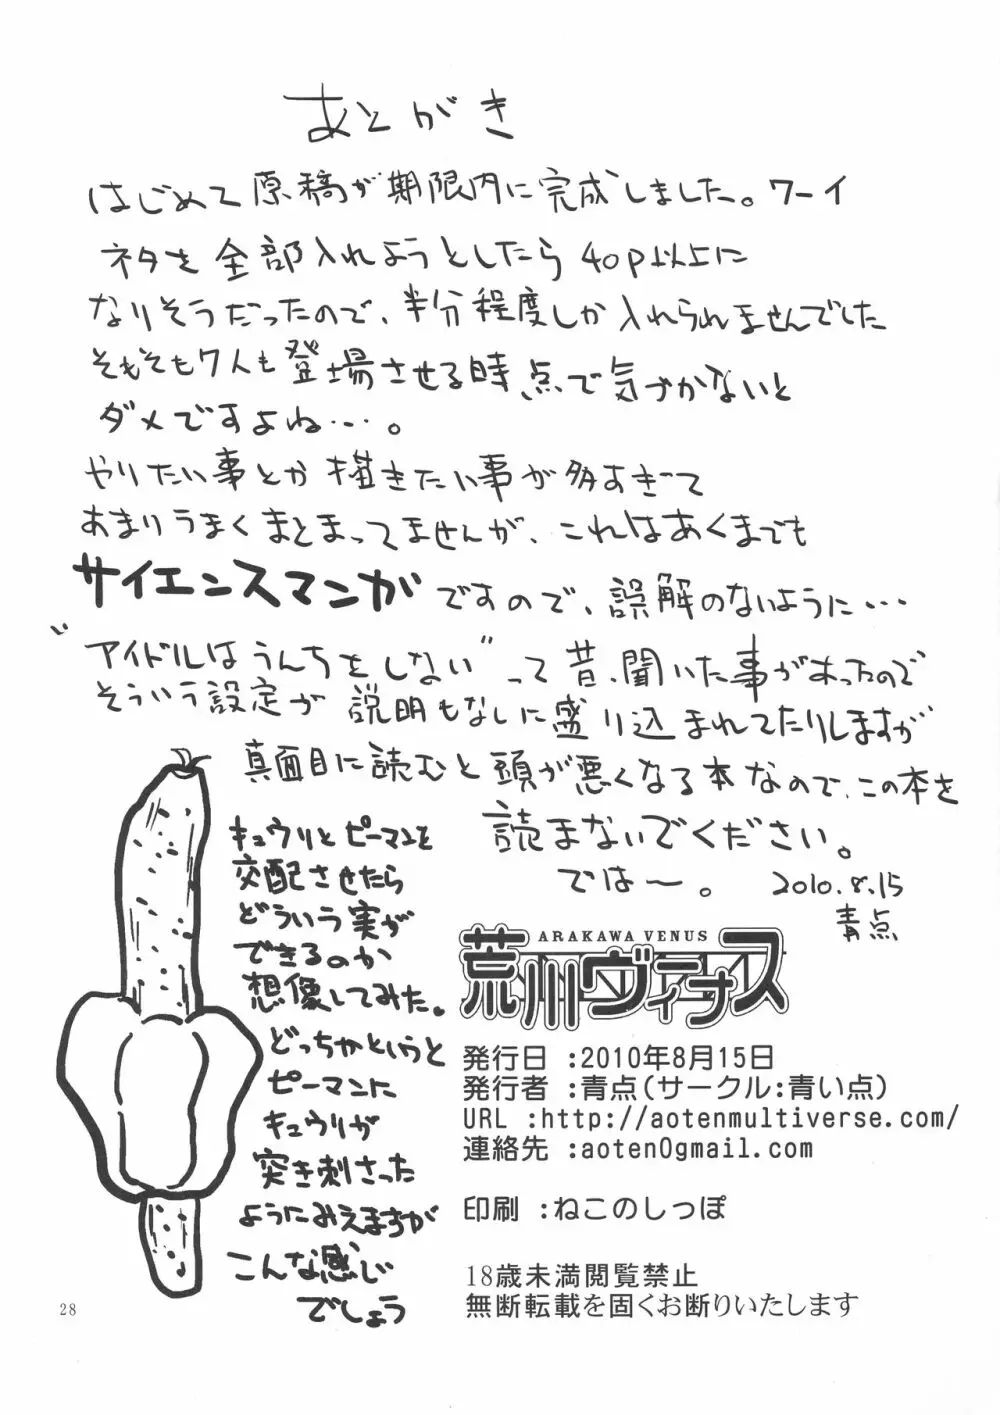 あとがき
はじめて原稿が期限内に完成しました。ワーイ
ネタを全部入れようとしたら40P以上に
なりそうだったので、半分程度しか入れられませんでした
そもそも7人も登場させる時点で気づかないと
ダメですよね…。
やりたい事とか描きたい事が多すぎて
あまりうまくまとまってませんが、これはあくまでも
サイエンスマンガですので、誤解のないように…
"アイドルはうんちをしない"って昔、聞いた事があったので
そういう設定が説明もなしに盛り込まれてたりしますが
真面目に読むと頭が悪くなる本なので、この本を
読まないでください。
では〜。 2010.8.15
青点
キュウリとピーマンを
交配させたら
どういう実が
できるのか
想像してみた。
どっちかというと
ピーマンに
キュウリが
突き刺さった
ようにみえますが
こんな感じ
でしょう
ARAKAWA VENUS
荒川ヴィーナス
発行日 :2010年8月15日
発行者 :青点(サークル:青い点)
URL :http://aotenmultiverse.com/
連絡先 :aoten0gmail.com
印刷 :ねこのしっぽ
18歳未満閲覧禁止
無断転載を固くお断りいたします
28